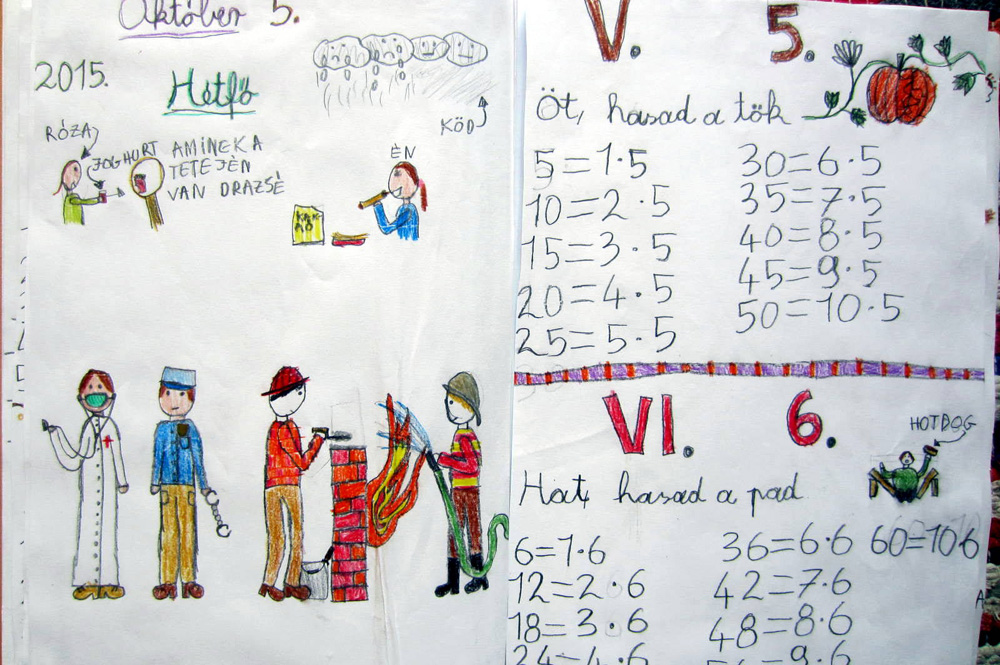 Október 5.
2015.
Hétfő
KÖD
RÓZA
JOGHURT
AMINEK A
TETEJÉN
VAN DRAZSÉ
ÉN
KAK
AÓ
V. 5.
Öt, hasad a tök
5=1·5
10=2·5
15=3·5
20=4·5
25=5·5
30=6·5
35=7·5
40=8·5
45=9·5
50=10·5
VI. 6.
HOTDOG
Hat, hasad a pad
6=1·6
12=2·6
18=3·6
24=4·6
36=6·6
42=7·6
48=8·6
54=9·6
60=10·6